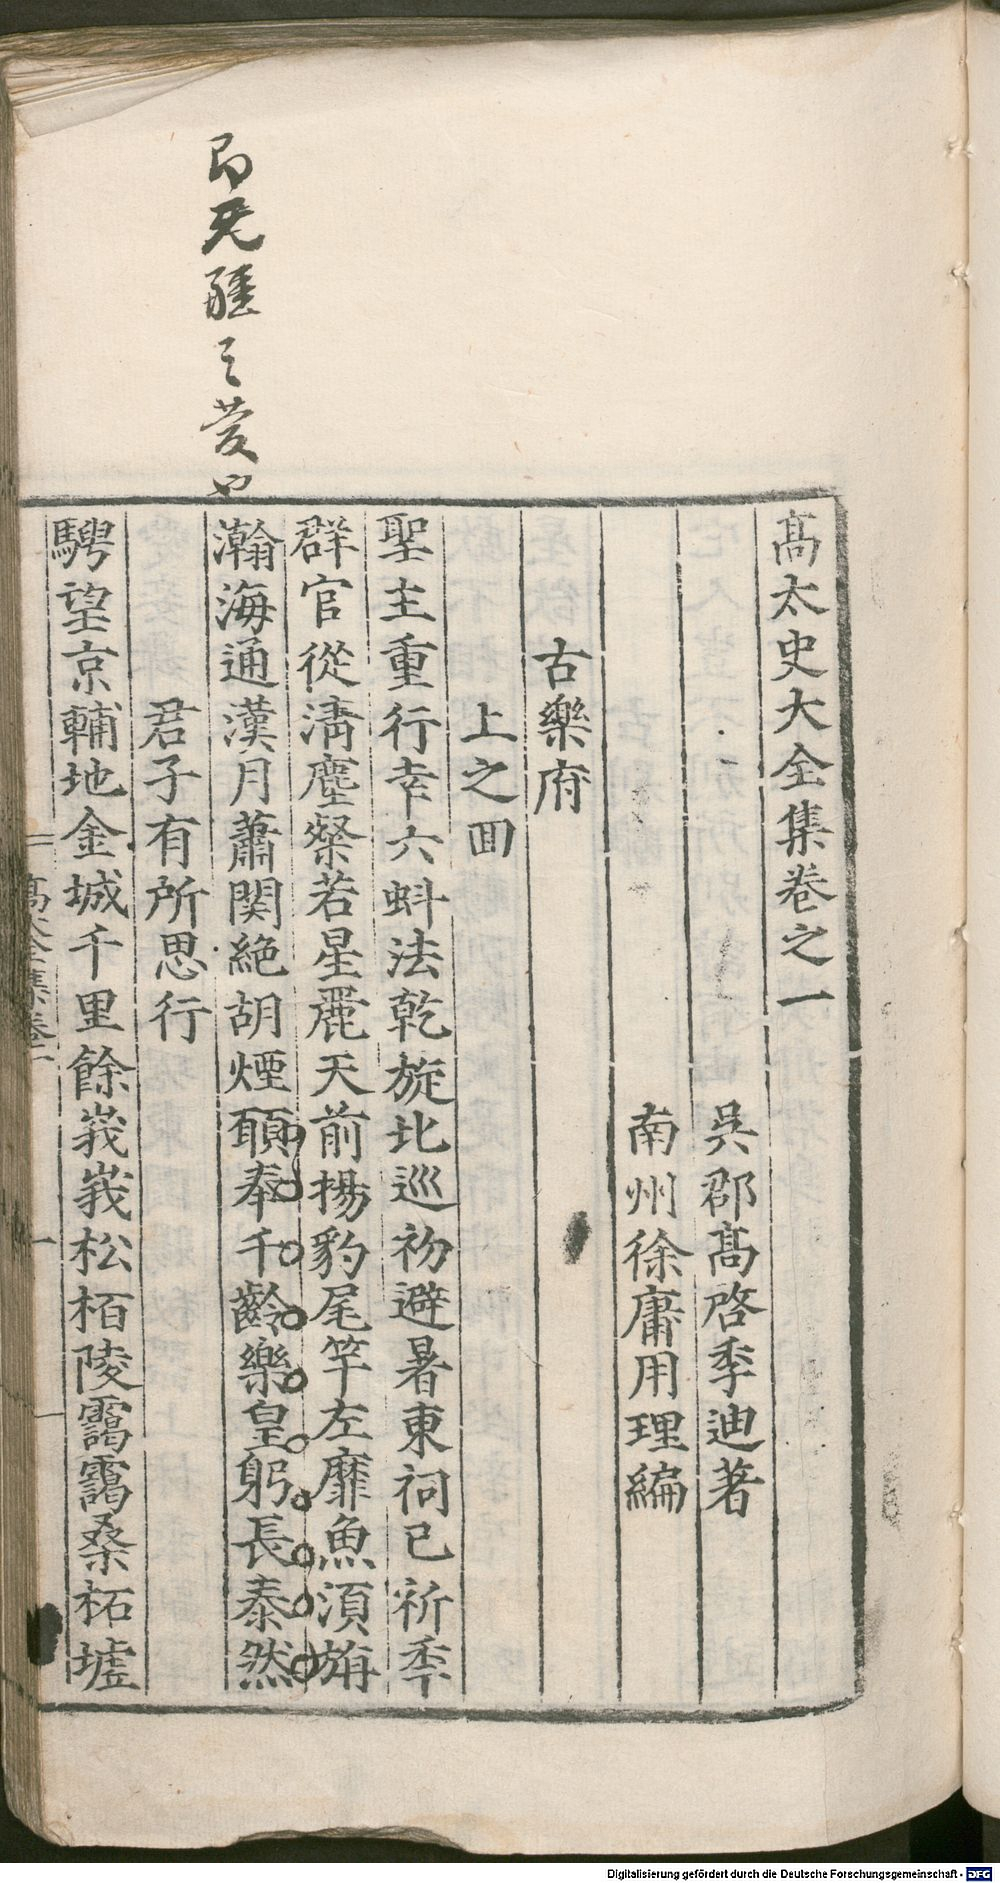 高太史大全集卷之一
吳郡高啓季迪著
南州徐庸用理編
古樂府
上之囬
聖主重行幸六蚪法乾旋北巡初避暑東祠已祈秊
群官從淸塵粲若星麗天前揚豹尾竿左靡魚湏旃
瀚海通漢月蕭関絶胡煙願奉千齡樂皇躬長泰然
君子有所思行
騁望京輔地金城千里餘峩峩松栢陵靄靄桑柘墟
高大全集卷一
一
即無疆之變也
Digitalisierung gefördert durch die Deutsche Forschungsgemeinschaft - DFG